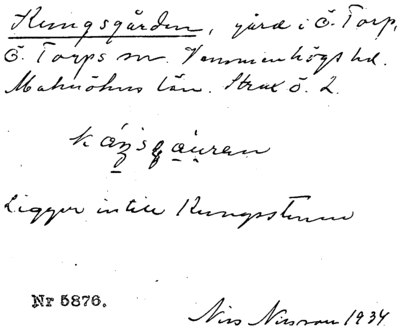 Kungsgården, gård i Ö. Torp,
Ö. Torps sn. Vemmenhögs hd.
Malmöhus län. Strax ö. L.
Ligger intill Kungsstenen
Nr 5876.
Nils Nilsson 1934